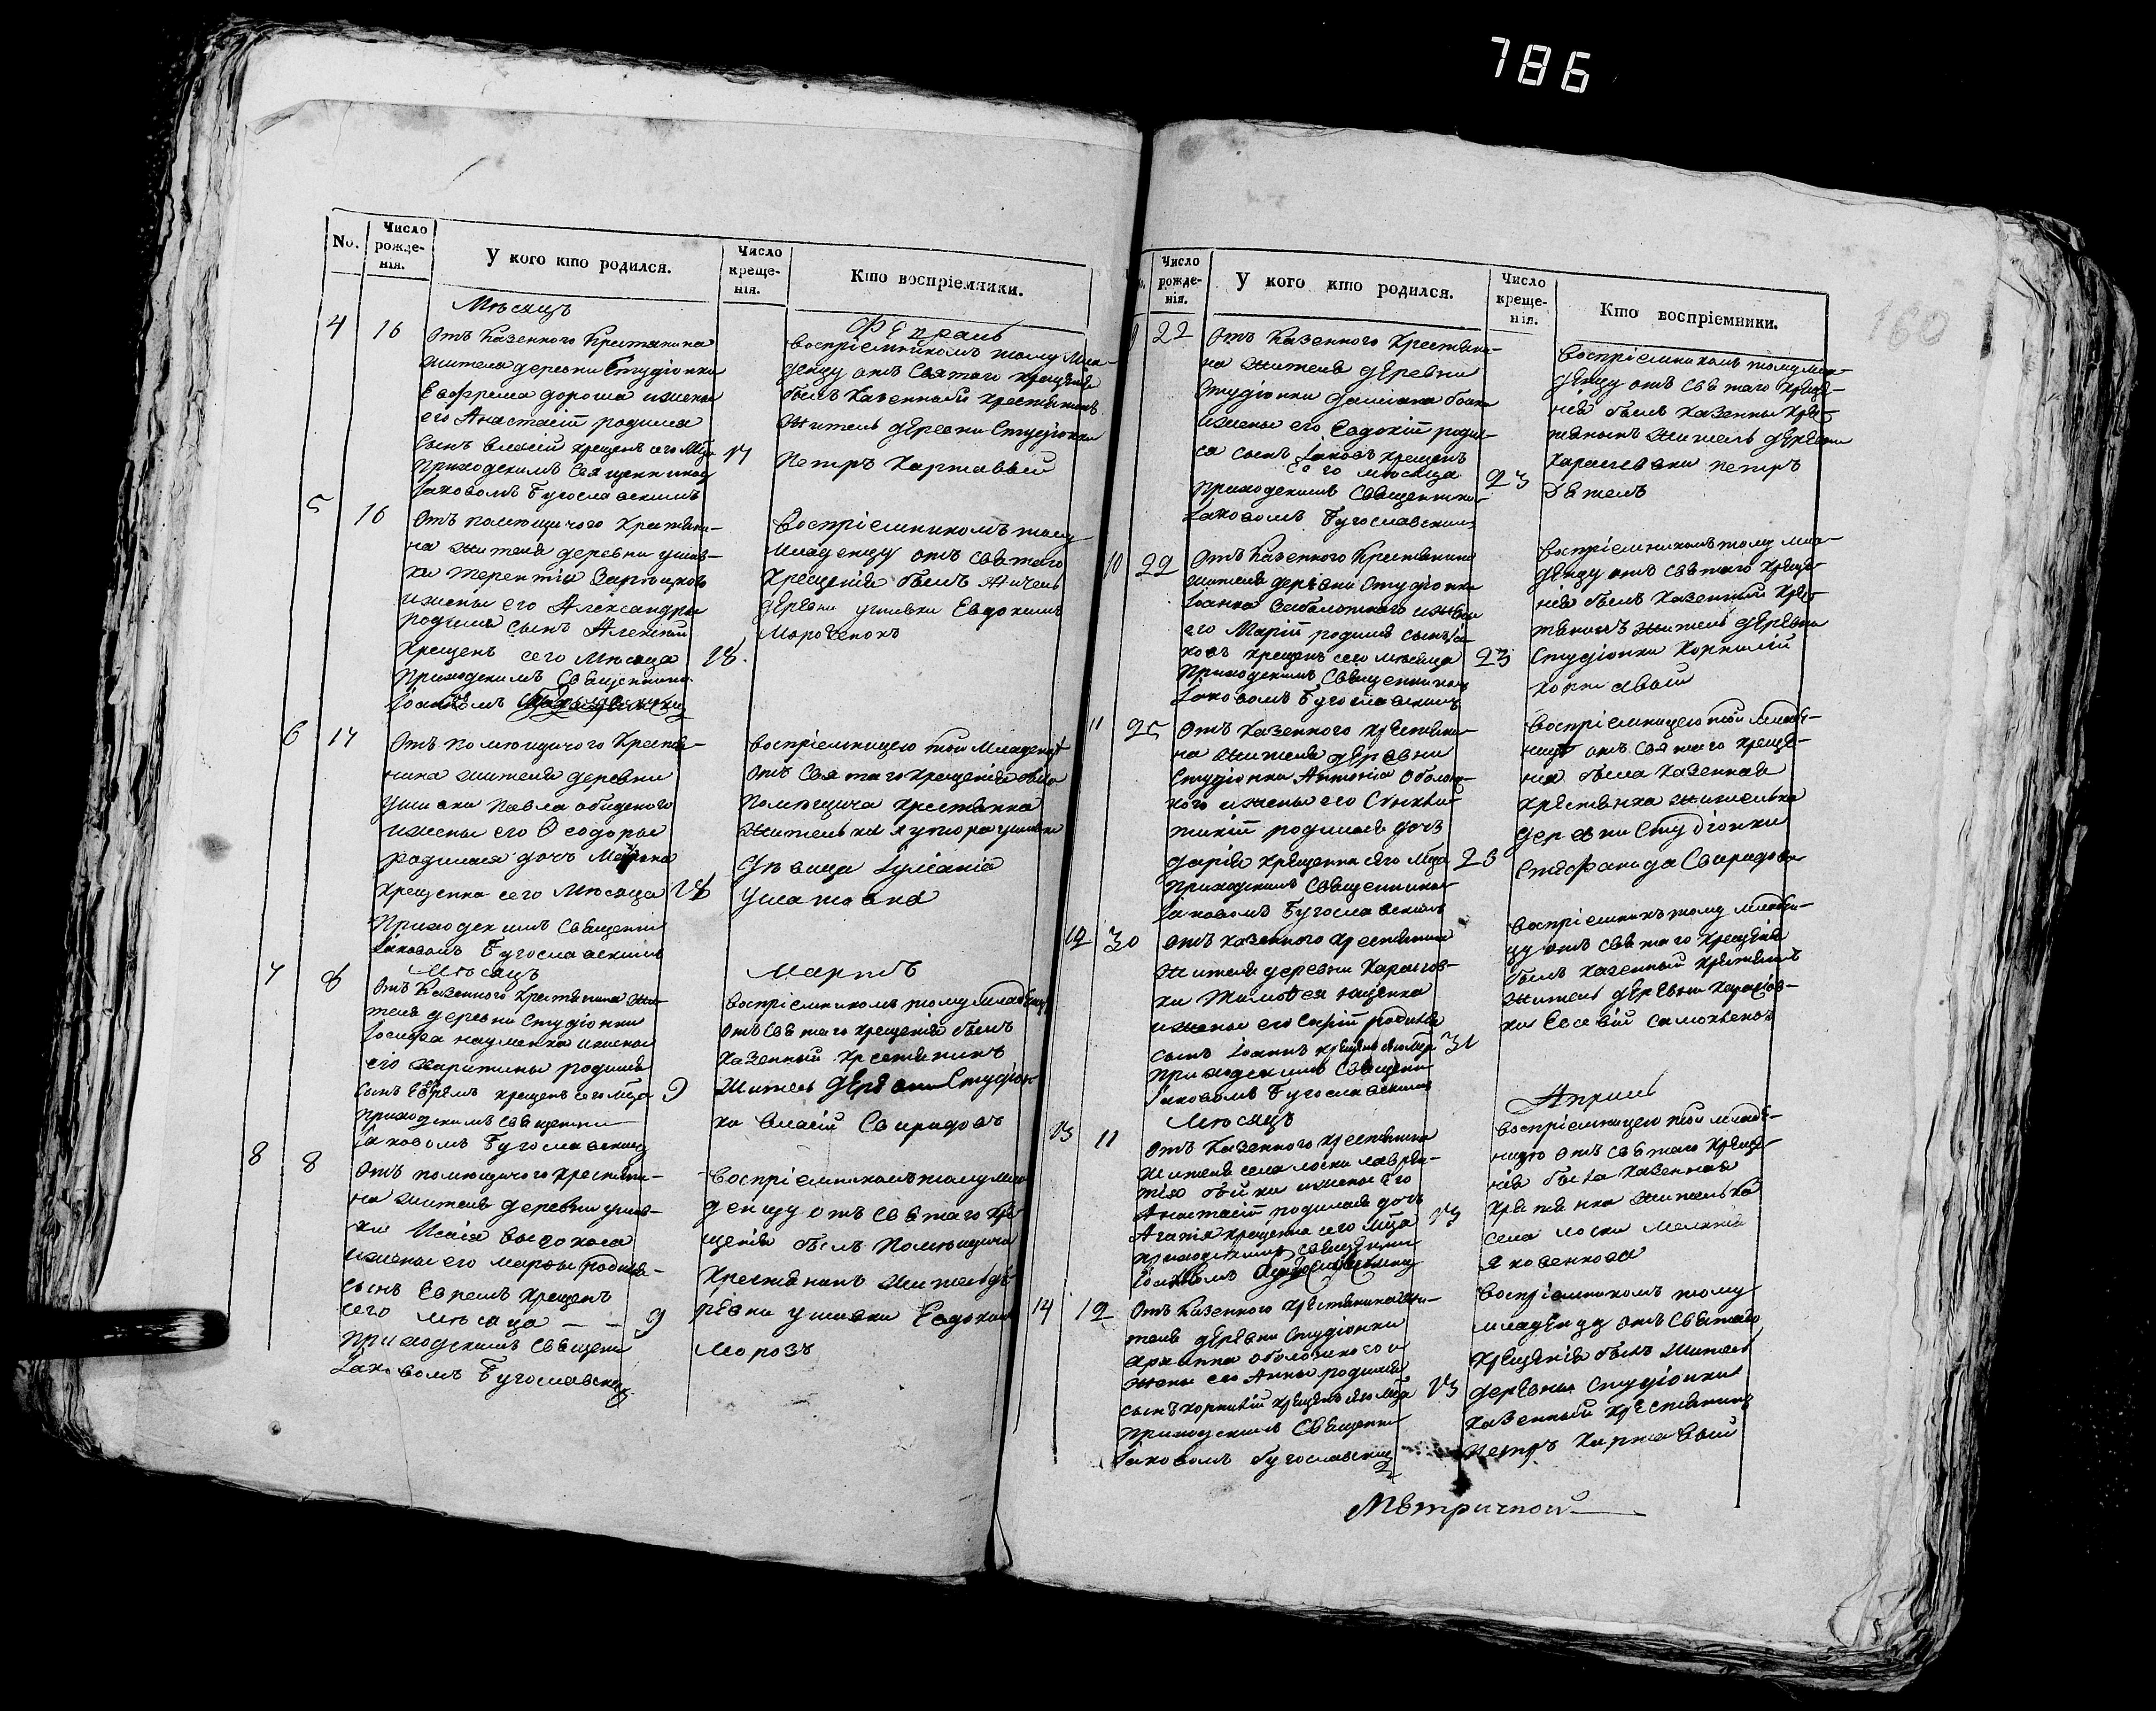 786
160
No.
Число рожде-
нія.
У кого кто родился.
Число креще-
нія.
Кто воспріемники.
Мѣсяцъ
Февраль
4 16
Отъ Казенного Крестянина
жителя деревни Студіонки
Евфрема дороша и жены
его Анастасіи родился
сынъ Власій крещенъ сего Мца 17
приходскимъ Священникомъ
Іаковомъ Бугославскимъ
Воспріемникомъ тому Мла-
денцу отъ Святаго крещенія
былъ Казенный крестянинъ
житель деревни Студіонки
Петръ Картавый
5 16
Отъ помющичого крестяни-
на жителя деревни ушив-
ки Терентія
и жены его Александры
родился сынъ Алексій
крещенъ сего Мѣсяца 18.
приходскимъ Священнико
Воспріемникомъ тому
Младенцу отъ Святаго
крещенія былъ житель
деревни ушивки Евдокимъ
6 17
Отъ помющичого Крестя-
нина жителя деревни
Ушивки Павла обидного
и жены его Ѳеодоры
родилася дочъ
крещенна сего Мѣсяца 18
Приходскимъ Священни
Іаковомъ Бугославскимъ
Воспріемницею той Младенцѣ
отъ Святаго крещенія была
помющича крестянка
жителька хутора ушивки
дѣвица Іуліанія
7 8
Мѣсяцъ
Мартъ
Отъ Казенного Крестянина жи-
теля деревни Студіонки
Іосифа науменка и жены
его харитины родился
сынъ Ефремъ крещенъ сего Мца 9
приходскимъ Священни
Іаковомъ Бугославским
Воспріемникомъ тому младенцу
отъ Святаго крещенія былъ
казенный крестянинъ
житель деревни Студіон
ки Власій Свиридовъ
8 8
Отъ помющичого крестяни-
на жителя деревни ушив-
ки Исаія высокоса
и жены его марфы родился
сынъ Евремъ крещенъ
сего мѣсяца - - 9
приходскимъ Священи
Іаковомъ Бугославским
Воспріемникомъ тому мла
денцу отъ Святаго кре
щенія былъ помющичи
крестянинъ житель де
ревни ушивки Евдоким
Морозъ
Число рожде-
нія.
У кого кто родился.
Число креще-
нія.
Кто воспріемники.
9 22
Отъ Казенного Крестяни-
на жителя деревни
Студіонки Даміана
и жены его Евдокіи роди-
са сынъ Іаковъ крещенъ
сего мѣсяца 23
приходскимъ Священнико
Іаковомъ Бугославским
Воспріемникомъ тому мла-
денцу отъ Святаго Креще-
нія былъ Казенны Крес-
тянинъ житель деревни
Карасевки Петръ
10 22
Отъ Казенного Крестянина
жителя деревни Студіонки
Іоанна Заболотного и жены
его Маріи родился сынъ Іа-
ковъ крещенъ сего мѣсяца 23
приходскимъ Священником
Іаковомъ Бугославским
Воспріемникомъ тому мла-
денцу отъ Святаго Креще-
нія былъ Казенный Крес-
тянинъ житель деревни
Студіонки Корнилій
Картавый
11 25
Отъ Казенного крестяни-
на жителя деревни
Студіонки Антонія Оболон-
кого и жены его
родилася дочъ
дарія крещенна сего Мца 26
приходскимъ Священнико
Іаковомъ Бугославским
Воспріемницею той младе-
ницѣ отъ Святаго Креще-
нія была Казенная
крестянка жителька
деревни Студіонки
Стефанида Свиридова
12 30
Отъ казенного крестянина
жителя деревни Карасев-
ки Тимофея
и жены его Софіи родился
сынъ Іоаннъ крещенъ сего Мца 31
приходскимъ Священи
Іаковомъ Бугославским
Воспріемникъ тому младен-
цу отъ Святаго крещенія
былъ Казенный крестянинъ
житель деревни Карасев-
ки Евсевій
Мѣсяцъ
Апрель
13 11
Отъ Казенного крестянина
жителя села лоски лаврен-
тіа бойки и жены его
Анастасіи родилася дочъ
Агапія крещенна сего Мца 13
приходскимъ Священни
Воспріемницею той младе-
ницѣ отъ Святаго Креще-
нія была Казенная
крестянка жителька
села лоски
яковенкова
14 12
Отъ Казенного Крестянина жи-
теля деревни Студіонки
архиппа оболонкого и
жены его Анны родился
сынъ корнилій крещенъ сего Мца 13
приходскимъ Священни
Іаковомъ Бугославским
Воспріемникомъ тому
младенцу отъ Святаго
Крещенія былъ житель
деревни Студіонки
казенный крестянинъ
петръ Картавый
Метричной